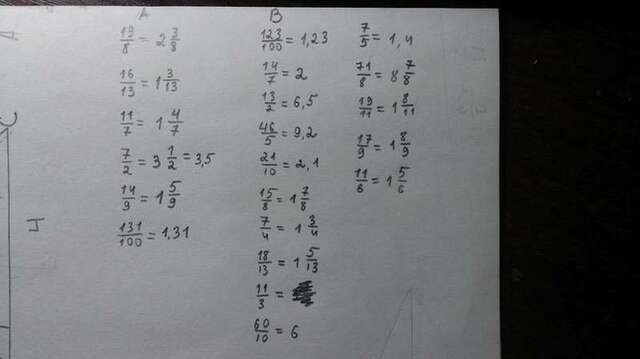 А
19/8 = 2 3/8
16/13 = 1 3/13
11/7 = 1 4/7
7/2 = 3 1/2 = 3,5
14/9 = 1 5/9
131/100 = 1,31
В
123/100 = 1,23
14/7 = 2
13/2 = 6,5
46/5 = 9,2
21/10 = 2,1
15/8 = 1 7/8
7/4 = 1 3/4
18/13 = 1 5/13
11/3 =
60/10 = 6
7/5 = 1,4
71/8 = 8 7/8
19/11 = 1 8/11
17/9 = 1 8/9
11/6 = 1 5/6